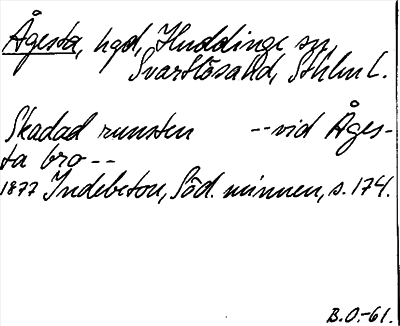 Ågesta, hgd, Huddinge sn,
Svartlösa hd, Sthlm L.
Skadad runsten -- vid Åges-
ta bro --
1877 Indebetou, Söd. minnen, s. 174.
B.O.-61.